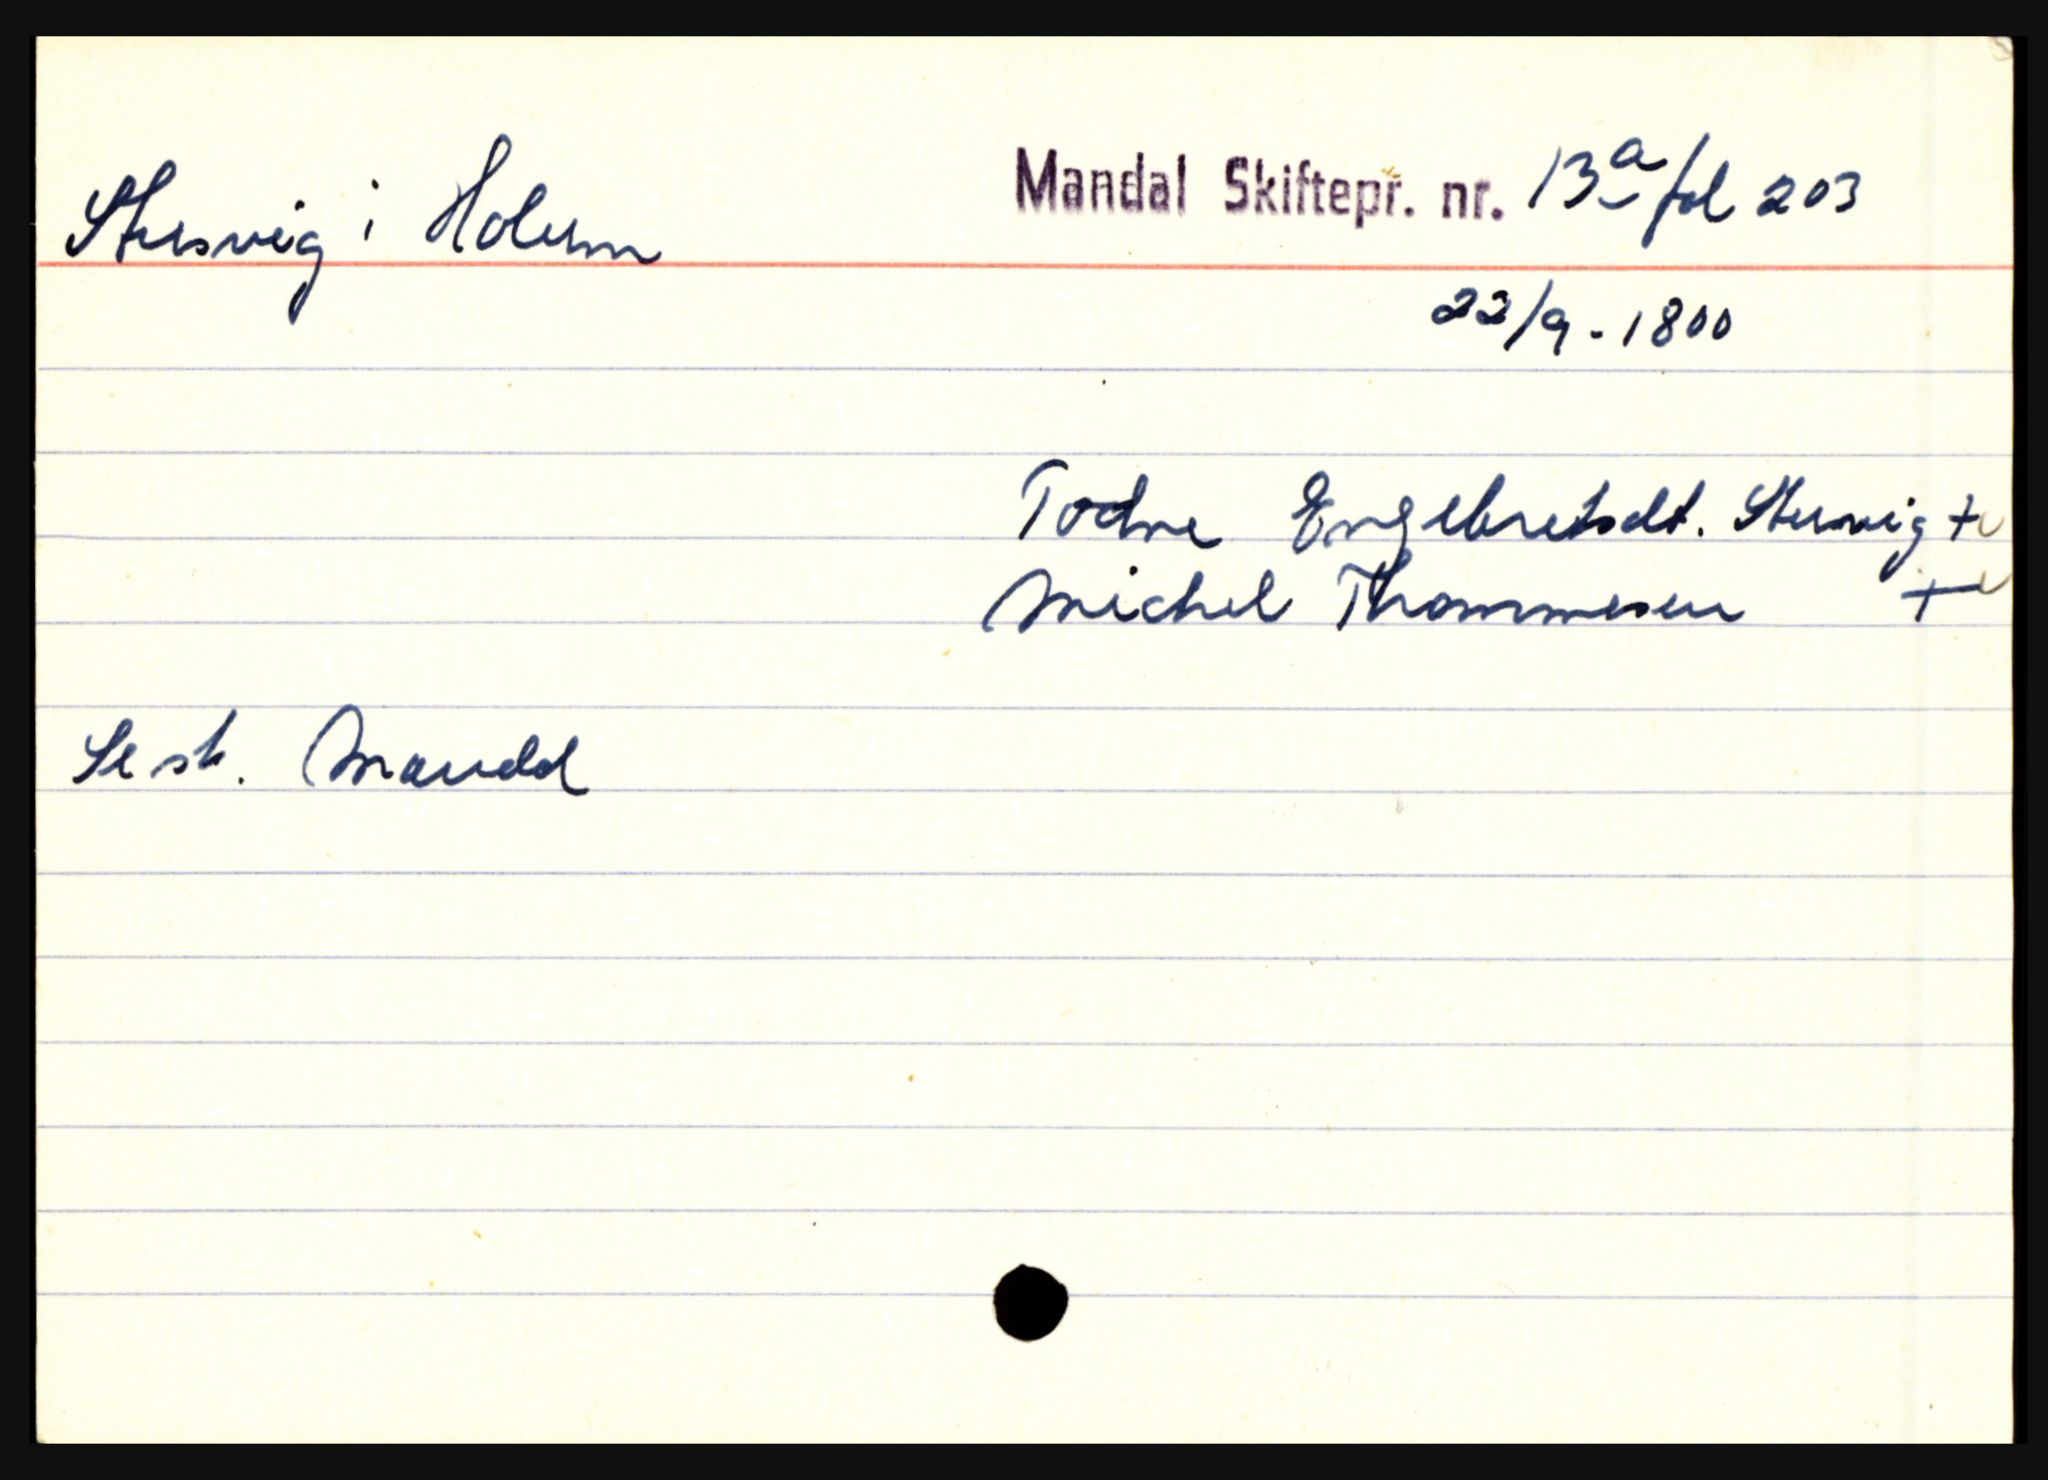 Stusvig i Holum
Mandal Skiftepr. nr. 13a fol 203
22/9-1800
Todne Engebretsdt. Stusvig +
Michel Thommesen +
Se sk. Mandal